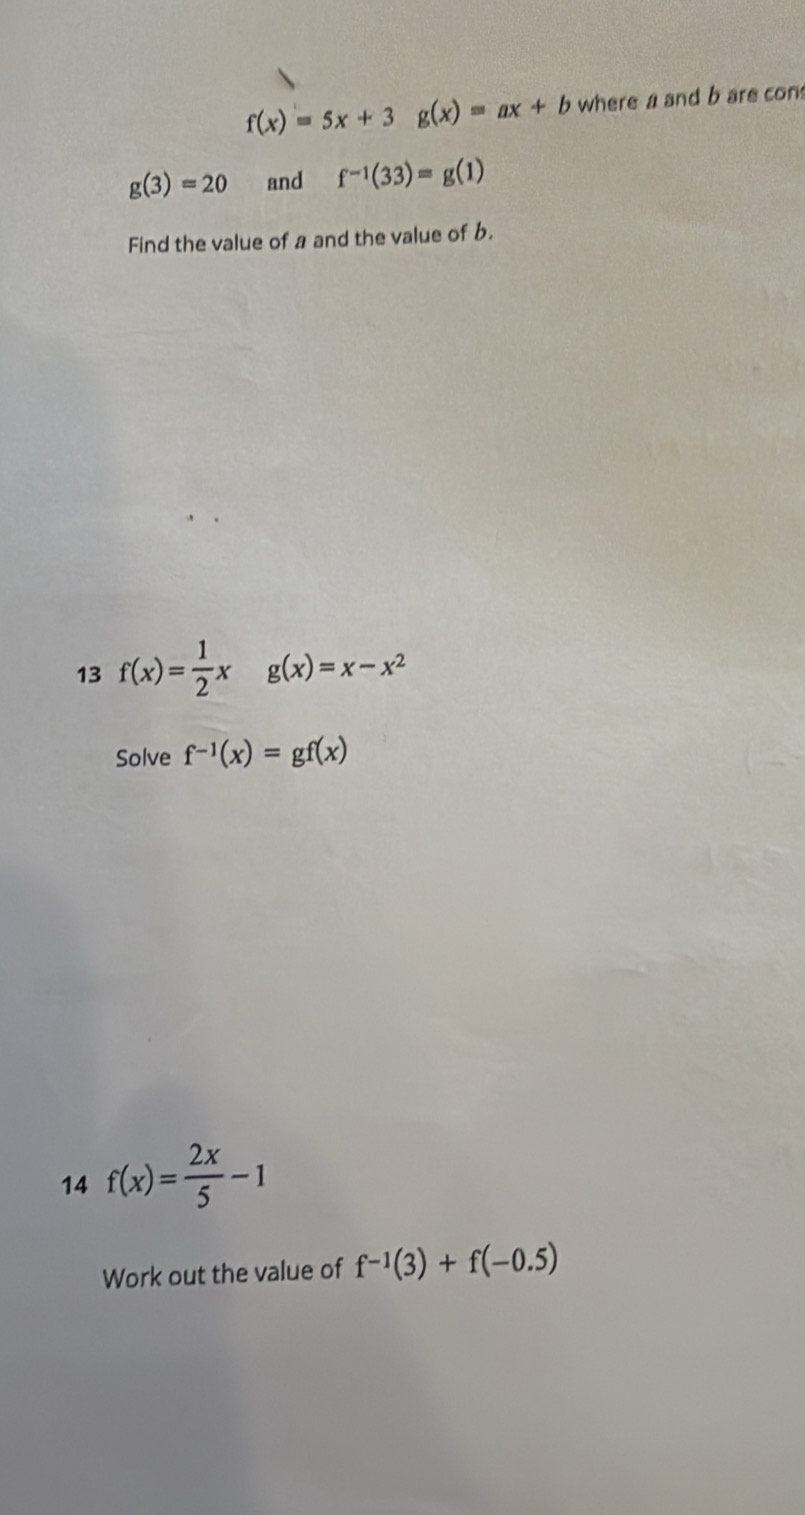 f(x) = 5x + 3 g(x) = ax + b where a and b are cons
g(3) = 20 and f⁻¹(33) = g(1)
Find the value of a and the value of b.
13 f(x) = 1/2 x g(x) = x − x²
Solve f⁻¹(x) = gf(x)
14 f(x) = 2x/5 − 1
Work out the value of f⁻¹(3) + f(−0.5)